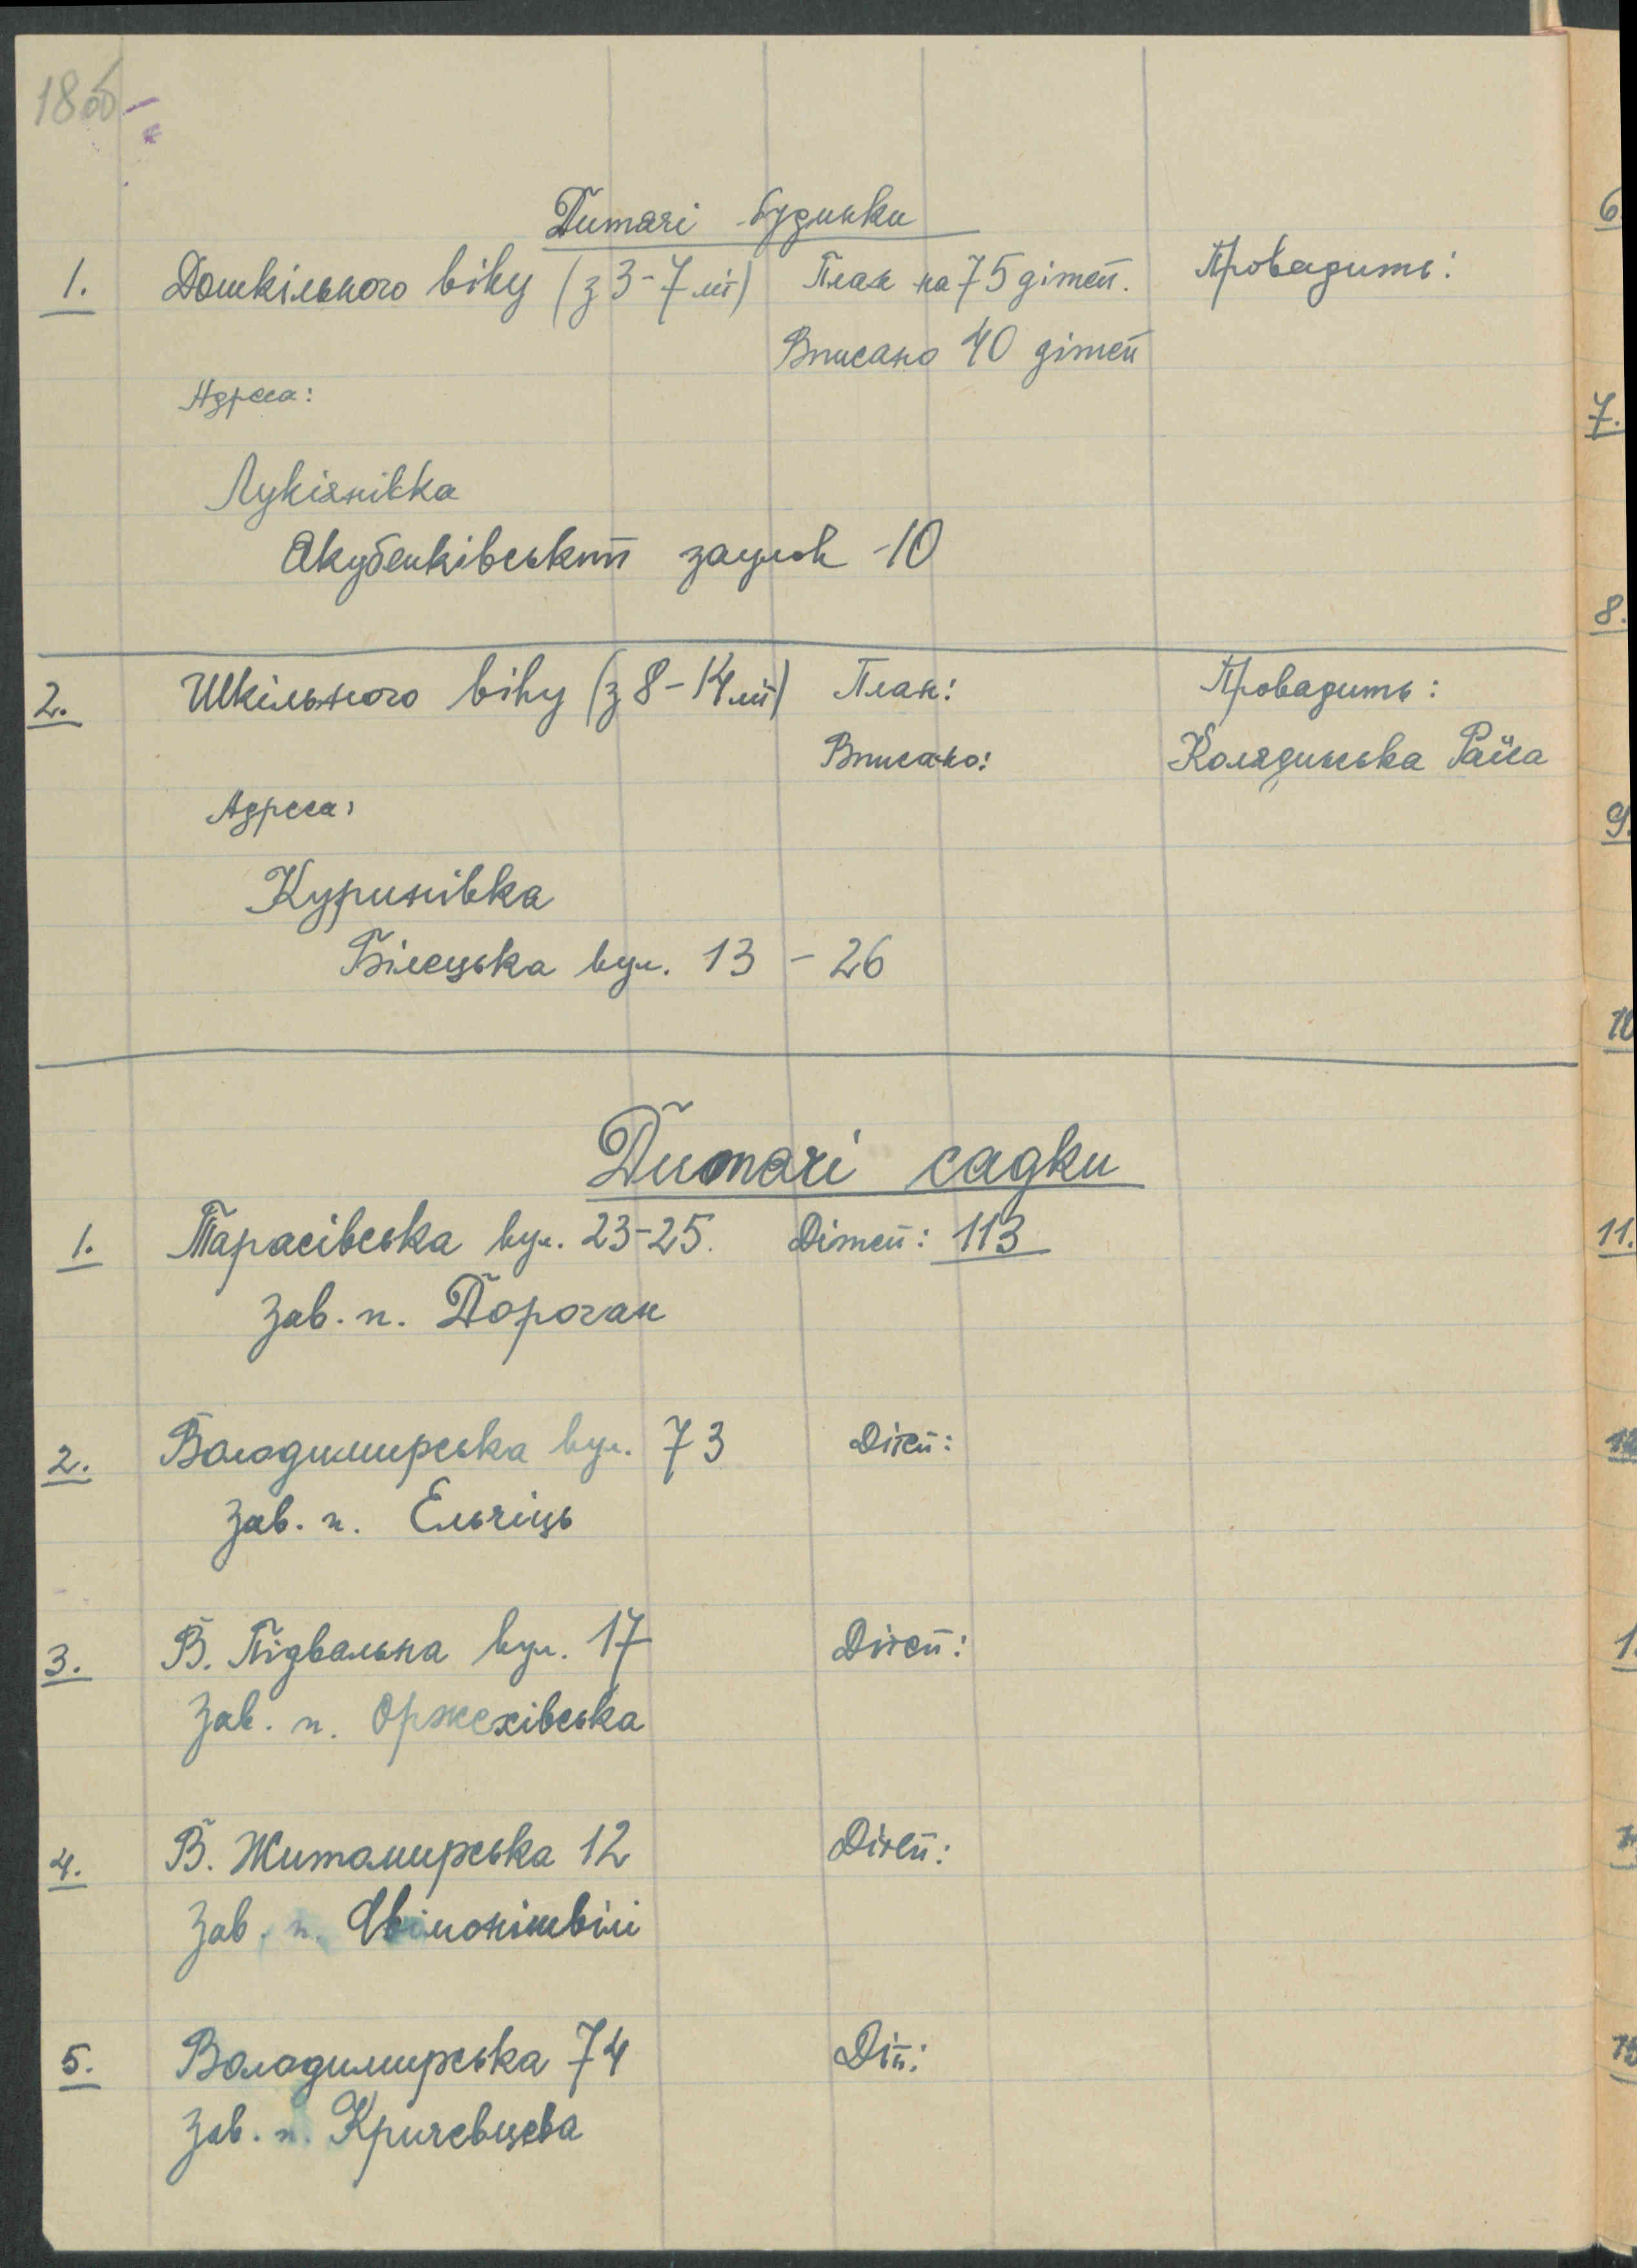 18об
Дитячі будинки
1. Дошкільного віку (з 3-7 літ) План на 75 дітей. Провадить:
Вписано 40 дітей
Адреса:
Лукіянівка
Якубенківський заулок -10
2. Шкільного віку (з 8-14 літ) План: Провадить:
Вписано: Колядинська Раїса
Адреса:
Куринівка
Білецька вул. 13 - 26
Дитячі садки
1. Тарасівська вул. 23-25. Дітей: 113
Зав. п. Дороган
2. Володимирська вул. 73 Дітей:
Зав. п. Ельчіць
3. В. Підвальна вул. 17 Дітей:
Зав. п. Оржехівська
4. В. Житомирська 12 Дітей:
Зав. п.
5. Володимирська 74 Діт.:
Зав. п. Кричевцева
6.
7.
8.
9.
10
11.